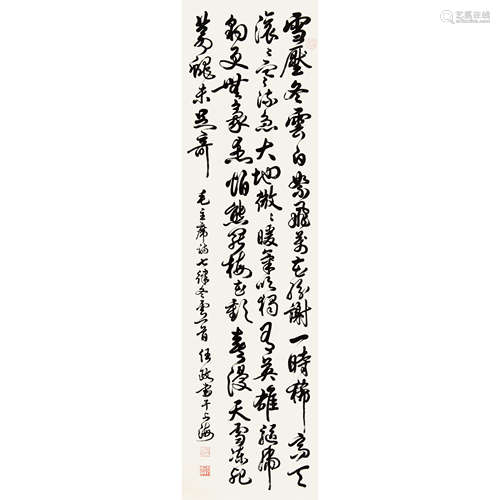 雪壓冬雲白絮飛萬花紛謝一時稀高天
滾〻寒流急大地微〻暖氣吹獨有英雄驅虎
豹更無豪傑怕熊羆梅花歡喜漫天雪凍死
蒼蠅未足奇 毛主席詩七律冬雲一首 任政書于上海